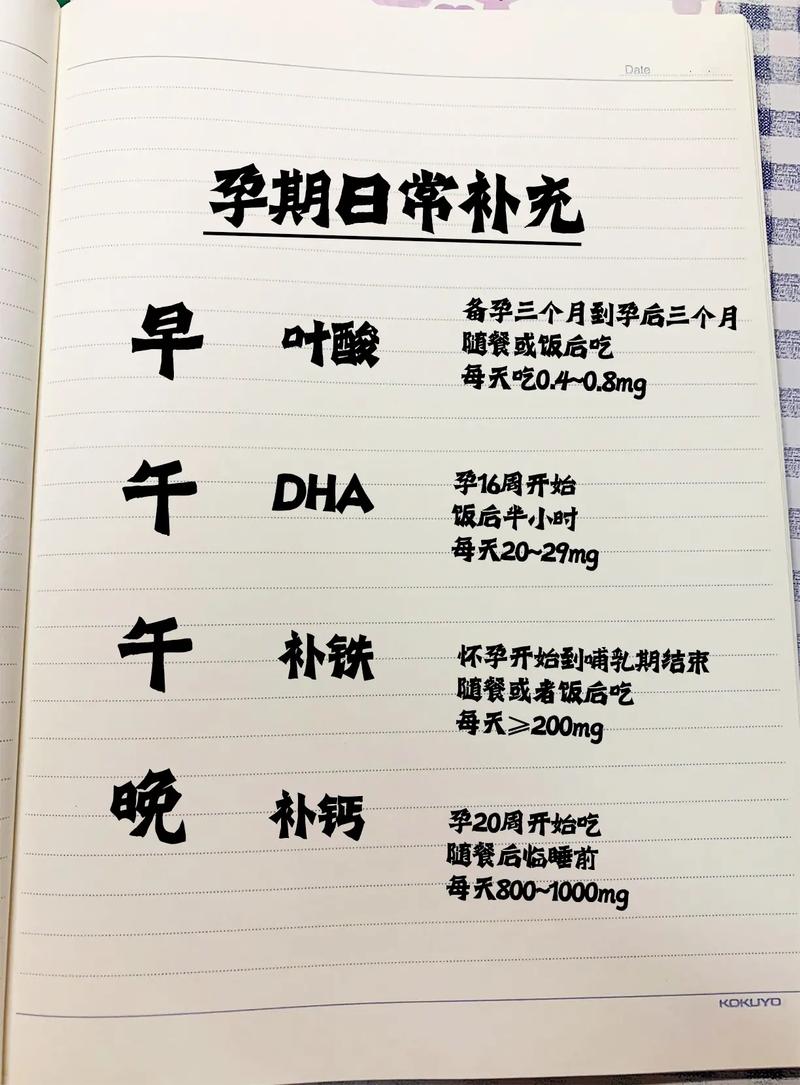 Date
孕期日常补充
早 叶酸
备孕三个月到孕后三个月
随餐或饭后吃
每天吃0.4~0.8mg
午 DHA
孕16周开始
饭后半小时
每天20~29mg
午 补铁
怀孕开始到哺乳期结束
随餐或者饭后吃
每天≥200mg
晚 补钙
孕20周开始吃
随餐后临睡前
每天800~1000mg
KOKUYO